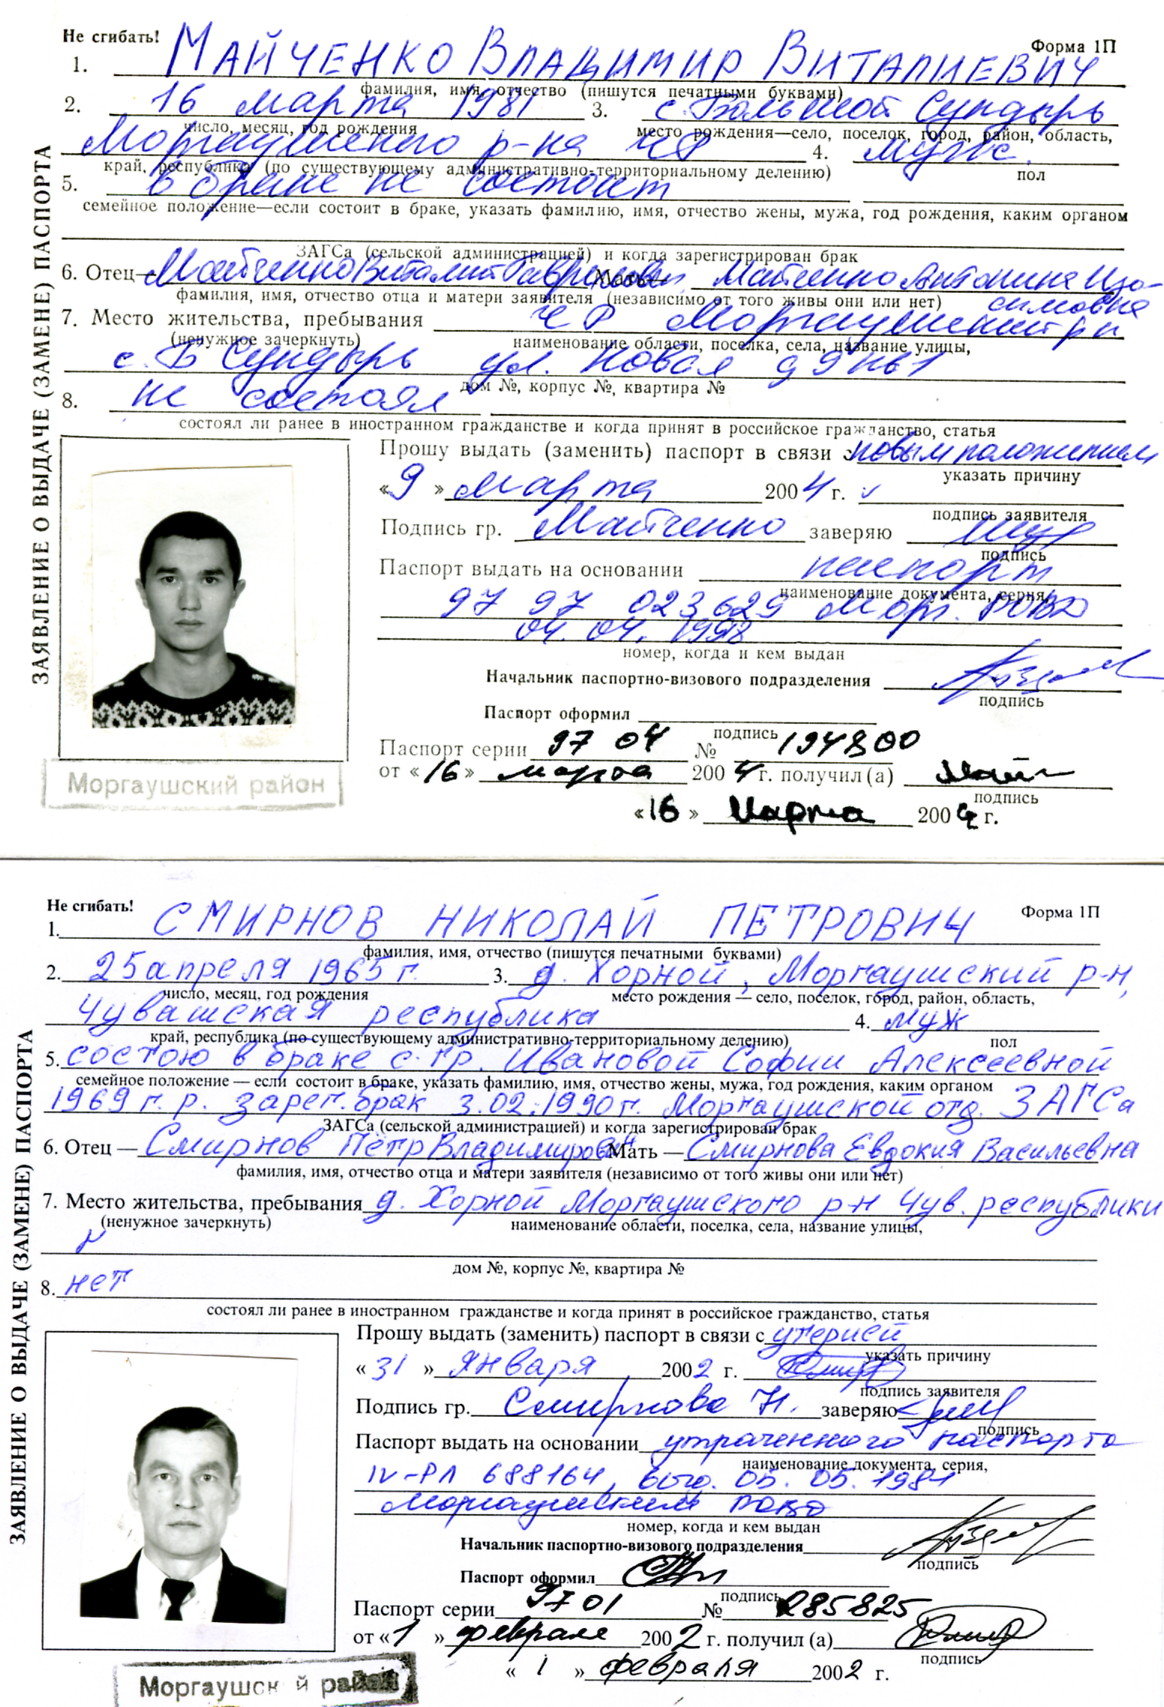 Не сгибать!
Форма 1П
1. МАЙЧЕНКО ВЛАДИМИР ВИТАЛИЕВИЧ
фамилия, имя, отчество (пишутся печатными буквами)
2. 16 марта 1981 3. с. Большой Сундырь
число, месяц, год рождения место рождения—село, поселок, город, район, область,
Моргаушского р-на ЧР 4. муж.
край, республика (по существующему административно-территориальному делению) пол
5. в браке не состоит
семейное положение—если состоит в браке, указать фамилию, имя, отчество жены, мужа, год рождения, каким органом
ЗАГСа (сельской администрацией) и когда зарегистрирован брак
6. Отец— Майченко Виталий Гаврилович Мать Майченко Антонина Изо-
симовна
фамилия, имя, отчество отца и матери заявителя (независимо от того живы они или нет)
7. Место жительства, пребывания ЧР Моргаушский р-н
(ненужное зачеркнуть) наименование области, поселка, села, название улицы,
с. Б Сундырь ул. Новая д 9 кв 1
дом №, корпус №, квартира №
8. не состоял
состоял ли ранее в иностранном гражданстве и когда принят в российское гражданство, статья
ЗАЯВЛЕНИЕ О ВЫДАЧЕ (ЗАМЕНЕ) ПАСПОРТА
Прошу выдать (заменить) паспорт в связи с новым положением
указать причину
«9» марта 2004 г.
подпись заявителя
Подпись гр. Майченко заверяю
подпись
Паспорт выдать на основании паспорт
наименование документа, серия,
97 97 023629 Морг. РОВД
04. 04. 1998
номер, когда и кем выдан
Начальник паспортно-визового подразделения
подпись
Паспорт оформил
подпись
Паспорт серии 97 04 № 194800
от «16» марта 2004 г. получил (а) Майч
подпись
«16» марта 2004 г.
Моргаушский район
Не сгибать!
Форма 1П
1. СМИРНОВ НИКОЛАЙ ПЕТРОВИЧ
фамилия, имя, отчество (пишутся печатными буквами)
2. 25 апреля 1965 г. 3. д. Хорной, Моргаушский р-н,
число, месяц, год рождения место рождения — село, поселок, город, район, область,
Чувашская республика 4. муж
край, республика (по существующему административно-территориальному делению) пол
5. состою в браке с гр. Ивановой Софии Алексеевной
семейное положение — если состоит в браке, указать фамилию, имя, отчество жены, мужа, год рождения, каким органом
1969 г. р. зарег. брак 3.02.1990 г. Моргаушской отд. ЗАГСа
ЗАГСа (сельской администрацией) и когда зарегистрирован брак
6. Отец — Смирнов Петр Владимирович Мать — Смирнова Евдокия Васильевна
фамилия, имя, отчество отца и матери заявителя (независимо от того живы они или нет)
7. Место жительства, пребывания д. Хорной Моргаушского р-н Чув. республики
(ненужное зачеркнуть) наименование области, поселка, села, название улицы,
дом №, корпус №, квартира №
8. нет
состоял ли ранее в иностранном гражданстве и когда принят в российское гражданство, статья
ЗАЯВЛЕНИЕ О ВЫДАЧЕ (ЗАМЕНЕ) ПАСПОРТА
Прошу выдать (заменить) паспорт в связи с утерией
указать причину
«31» января 2002 г.
подпись заявителя
Подпись гр. Смирнова Н. заверяю
подпись
Паспорт выдать на основании утраченного паспорта
наименование документа, серия,
IV-РЛ 688164, выд. 05. 05. 1981
Моргаушским РОВД
номер, когда и кем выдан
Начальник паспортно-визового подразделения
подпись
Паспорт оформил
подпись
Паспорт серии 97 01 № 285825
от «1» февраля 2002 г. получил (а)
подпись
«1» февраля 2002 г.
Моргаушск й район